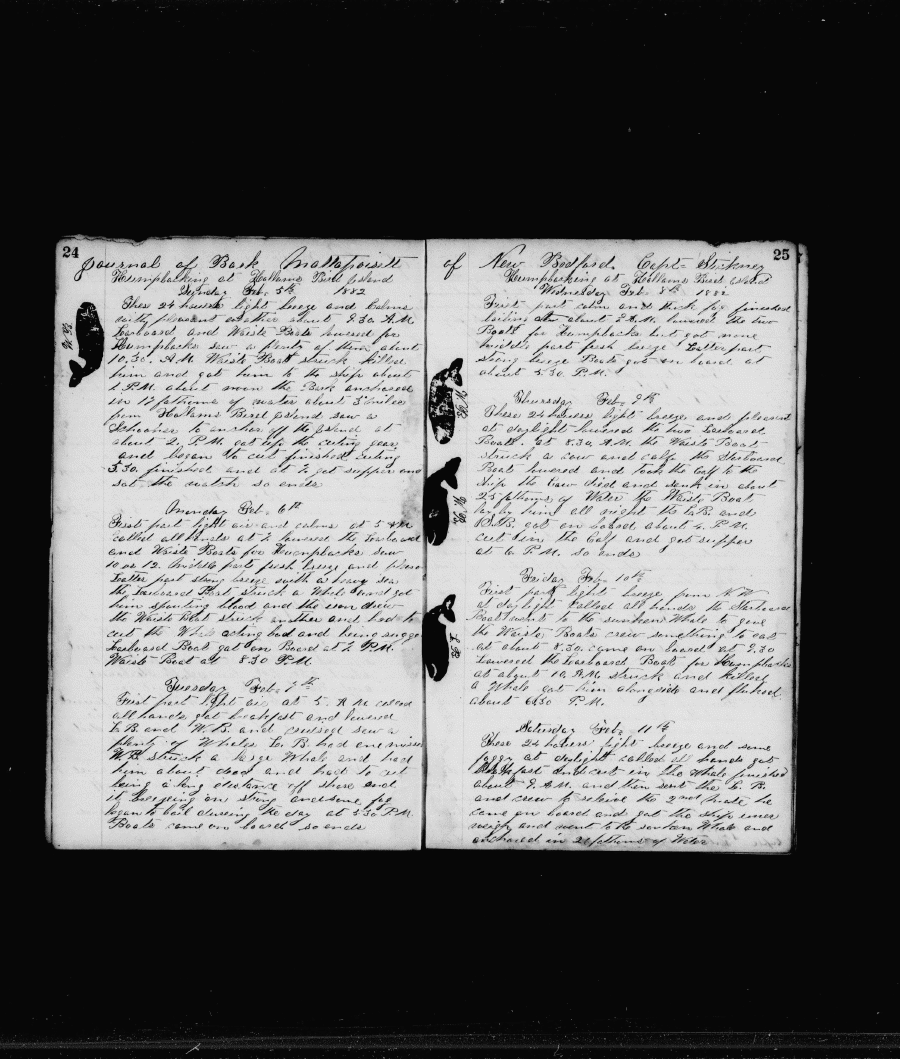 24
Journal of Bark Mattapoisett
Humpbacking at Hollams Bird Island
Sunday Feb. 5th 1882
These 24 hours light breeze and calms
with pleasant weather about 8.30 A.M.
Larboard and Waist Boats lowered for
Humpbacks saw a plenty of them about
10.30. A.M. Waist Boat struck killed
him and got him to the ship about
1 P.M. about noon the Bark anchored
in 17 fathoms of water about 3 miles
from Hollams Bird Island saw a
Schooner to anchor off the Island at
about 2. P.M. got up the cuting gear
and began to cut finished cuting
5.30. finished and at 7 got supper and
sat the watch so ends
W.B.
Monday Feb. 6th
First part light air and calms at 5 A.M
called all hands at 7 lowered the Larboard
and Waist Boats for Humpbacks saw
10 or 12. middle parts fresh breeze and
Latter part strong breeze with a heavy sea
the Larboard Boat struck a Whale and got
him spouting blood and the iron drew
the Waist Boat struck another and had to
cut the Whale acting bad and being
Larboard Boat got on Board at 7. P.M.
Waist Boat at 8.30 P.M.
Tuesday Feb. 7th
First part light air at 5. A.M. called
all hands got breakfast and lowered
L.B. and W.B. and cruised saw a
plenty of Whales L.B. had one
W.B. struck a large Whale and had
him about dead and had to cut
being a long distance off shore and
it breezeing on strong and some fog
began to boil dureing the day at 5.30 P.M.
Boats came on board so ends
25
of New Bedford. Capt. Stickney
Humpbacking at Hollams Bird Island
Wednesday Feb. 8th 1882
First part calm and thick fog finished
boiling at about 7 A.M. lowered the two
Boats for Humpbacks but got none
middle part fresh breeze Latter part
strong breeze Boats got on board at
about 5.30 P.M.
Thursday Feb. 9th
These 24 hours light breeze and pleasant
at daylight lowered the two Larboard
Boats. at 8.30 A.M. the Waist Boat
struck a cow and calf the Starboard
Boat lowered and took the Calf to the
ship the Cow died and sunk in about
25 fathoms of Water the Waist Boat
lay by him all night the L.B. and
S.B. got on board about 4. P.M.
cut in the Calf and got supper
at 6 P.M. so ends
Friday Feb. 10th
First part light breeze from N.W.
at daylight called all hands the Starboard
Boat went to the sunken Whale to give
the Waist Boats crew something to eat
at about 8.30. came on board at 9.30
Lowered the Larboard Boat for Humpbacks
at about 10 A.M. struck and killed
a Whale got him alongside and fluked
about 6.30 P.M.
L.B.
Saturday Feb. 11th
These 24 hours light breeze and some
foggy at daylight called all hands got
Breakfast and cut in the Whale finished
about 9 A.M. and then sent the L.B.
and crew to releive the 2nd mate he
came on board and got the ship under
weigh and went to the sunken Whale and
anchored in 21 fathoms of Water